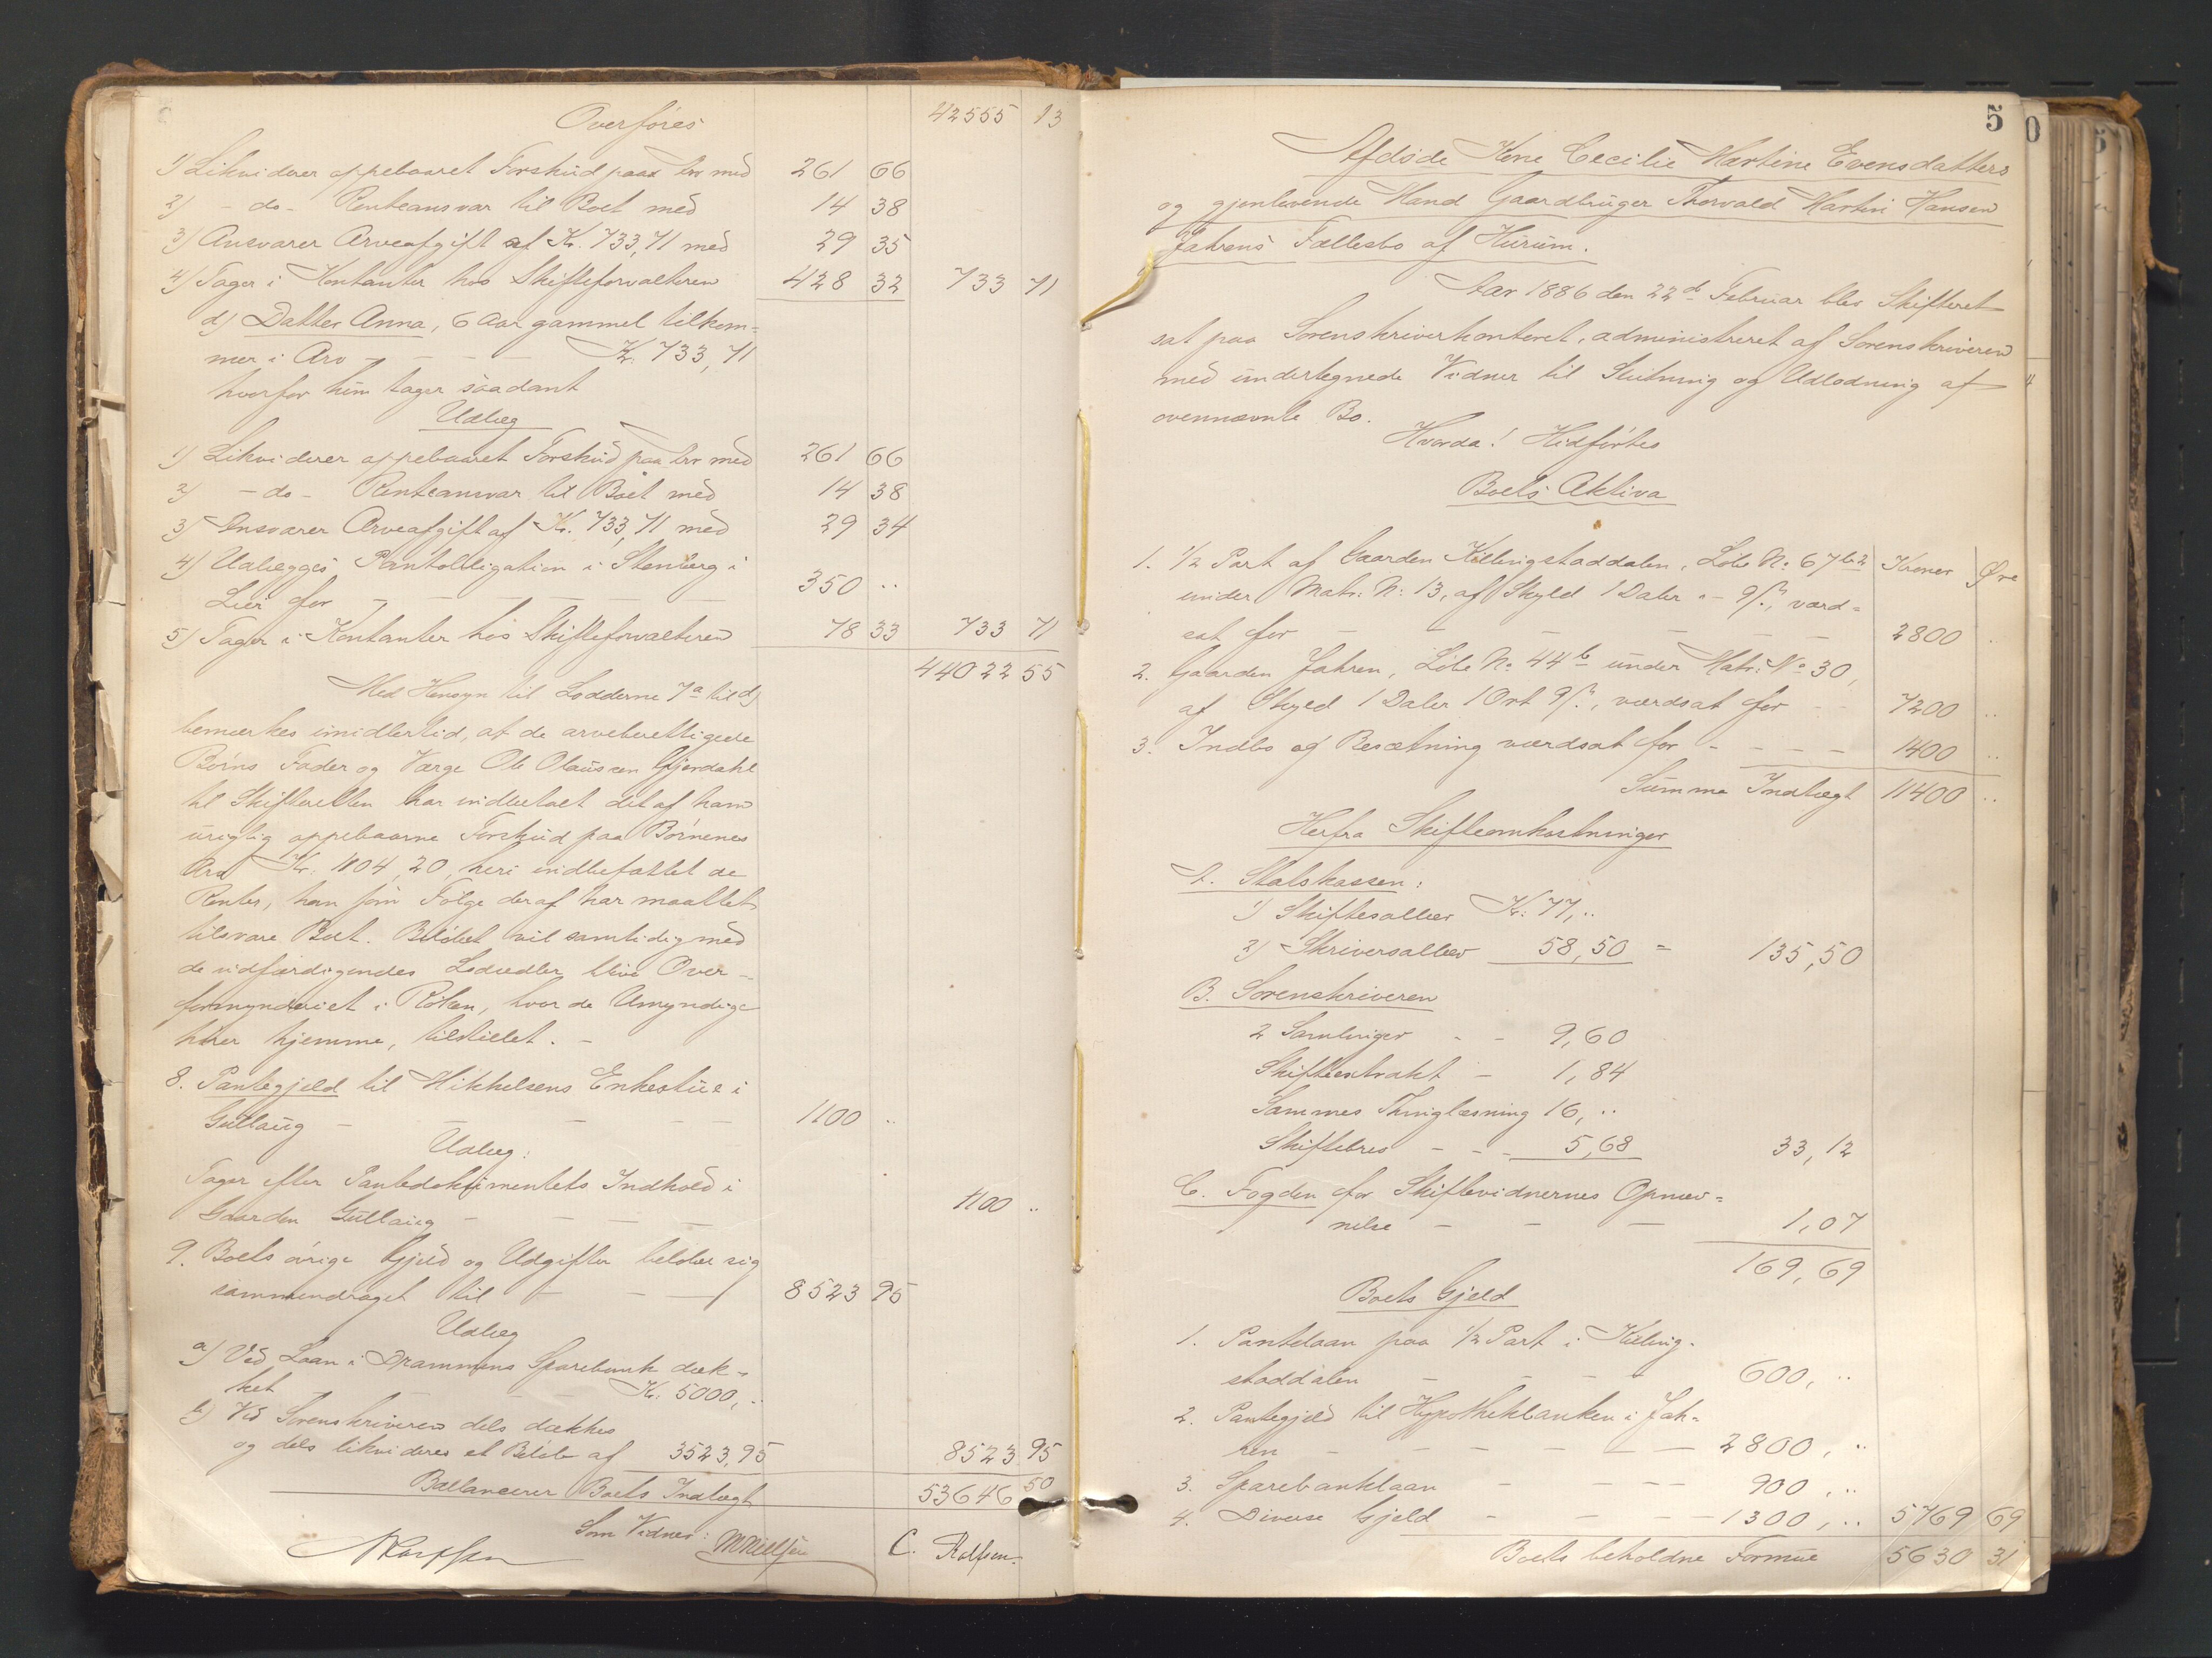 Overføres 42555 13
1) Likviderer oppebaaret Forskud paa Arv med 261 66
2) - do - Renteansvar til Boet med 14 38
3) Ansvarer Arveafgift af Kr. 733,71 med 29 35
4) Tager i Kontanter hos Skifteforvalteren 428 32 733 71
d) Datter Anna, 6 Aar gammel tilkom=
mer i Arv - - - - Kr. 733,71
hvorfor hun tager saadant
Udlæg
1) Likviderer oppebaaret Forskud paa Arv med 261 66
2) - do - Renteansvar til Boet med 14 38
3) Ansvarer Arveafgift af Kr. 733,71 med 29 34
4) Udlægges Pantobligation i Stenberg i
Lier for - - - - - - 350 ..
5) Tager i Kontanter hos Skifteforvalteren 78 33 733 71
44022 55
Med Hensyn til Lodderne 7a til d)
bemærkes imidlertid, at de arveberettigede
Børns Fader og Værge Ole Olaussen Gjerdahl
til Skifteretten har indbetalt det af ham
urigtig oppebaarne Forskud paa Børnenes
Arv Kr. 1104,20, heri indbefattet de
Renter, han som Følge deraf har maattet
tilsvare Boet. Beløbet vil samtidig med
de udfærdigendes Lodsedler blive Over-
formynderiet i Røken, hvor de Umyndige
hører hjemme, tilstillet. -
8. Pantegjeld til Mikkelsens Enkestue i
Gullaug - - - - - - 1100 ..
Udlæg:
Tager efter Pantedokumentets Indhold i
Gaarden Gullaug - - - - 1100 ..
9. Boets øvrige Gjeld og Udgifter beløber sig
sammendraget til - - - 8523 95
Udlæg
a) Ved Laan i Drammens Sparebank dæk-
ket - - - Kr. 5000,..
b) Ved Sorenskriveren dels dækkes
og dels likvideres et Beløb af 3523,95 8523 95
Ballancerer Boets Indtægt 53646 50
Som Vidner: M Nielsen C. Rolfsen.
5
Afdøde Kone Cecilie Martine Evensdatters
og gjenlevende Mand Gaardbruger Thorvald Martin Hansen
Jahrens Fællesbo af Hurum.
Aar 1886 den 22d Februar blev Skifteret
sat paa Sorenskriverkontoret, administreret af Sorenskriveren
med undertegnede Vidner til Slutning og Udlodning af
ovennævnte Bo.
Hvorda! Hidførtes
Boets Aktiva
Kroner Øre
1. 1/2 Part af Gaarden Killingstaddalen, Løbe No 67 b2
under Matr: No 13, af Skyld 1 Daler .. - 9 s, værd=
sat for - - - - - - 2800 ..
2. Gaarden Jahren, Løbe No 44b under Matr: No 30,
af Skyld 1 Daler 1 Ort 9 s, værdsat for - - 7200 ..
3. Indbo og Besætning værdsat for - - - - 1400 ..
Summa Indtægt 11400 ..
Herfra Skifteomkostninger
A. Statskassen:
1) Skiftesallær Kr: 77,..
2) Skriversallær 58,50 = 135,50
B. Sorenskriveren
2 Samlinger - - 9,60
Skifteextrakt - 1,84
Sammes Thinglæsning 16,..
Skiftebrev - - - 5,68 33,12
C. Fogden for Skiftevidnernes Opnæv=
nelse - - - 1,07
169,69
Boets Gjeld
1. Pantelaan paa 1/2 Part i Killing-
staddalen - - - - 600,..
2. Pantegjeld til Hypothekbanken i Jah=
ren - - - - - - 2800,..
3. Sparebanklaan - - - - 900,..
4. Diverse Gjeld - - - - 1300,.. 5769 69
Boets beholdne Formue 5630 31